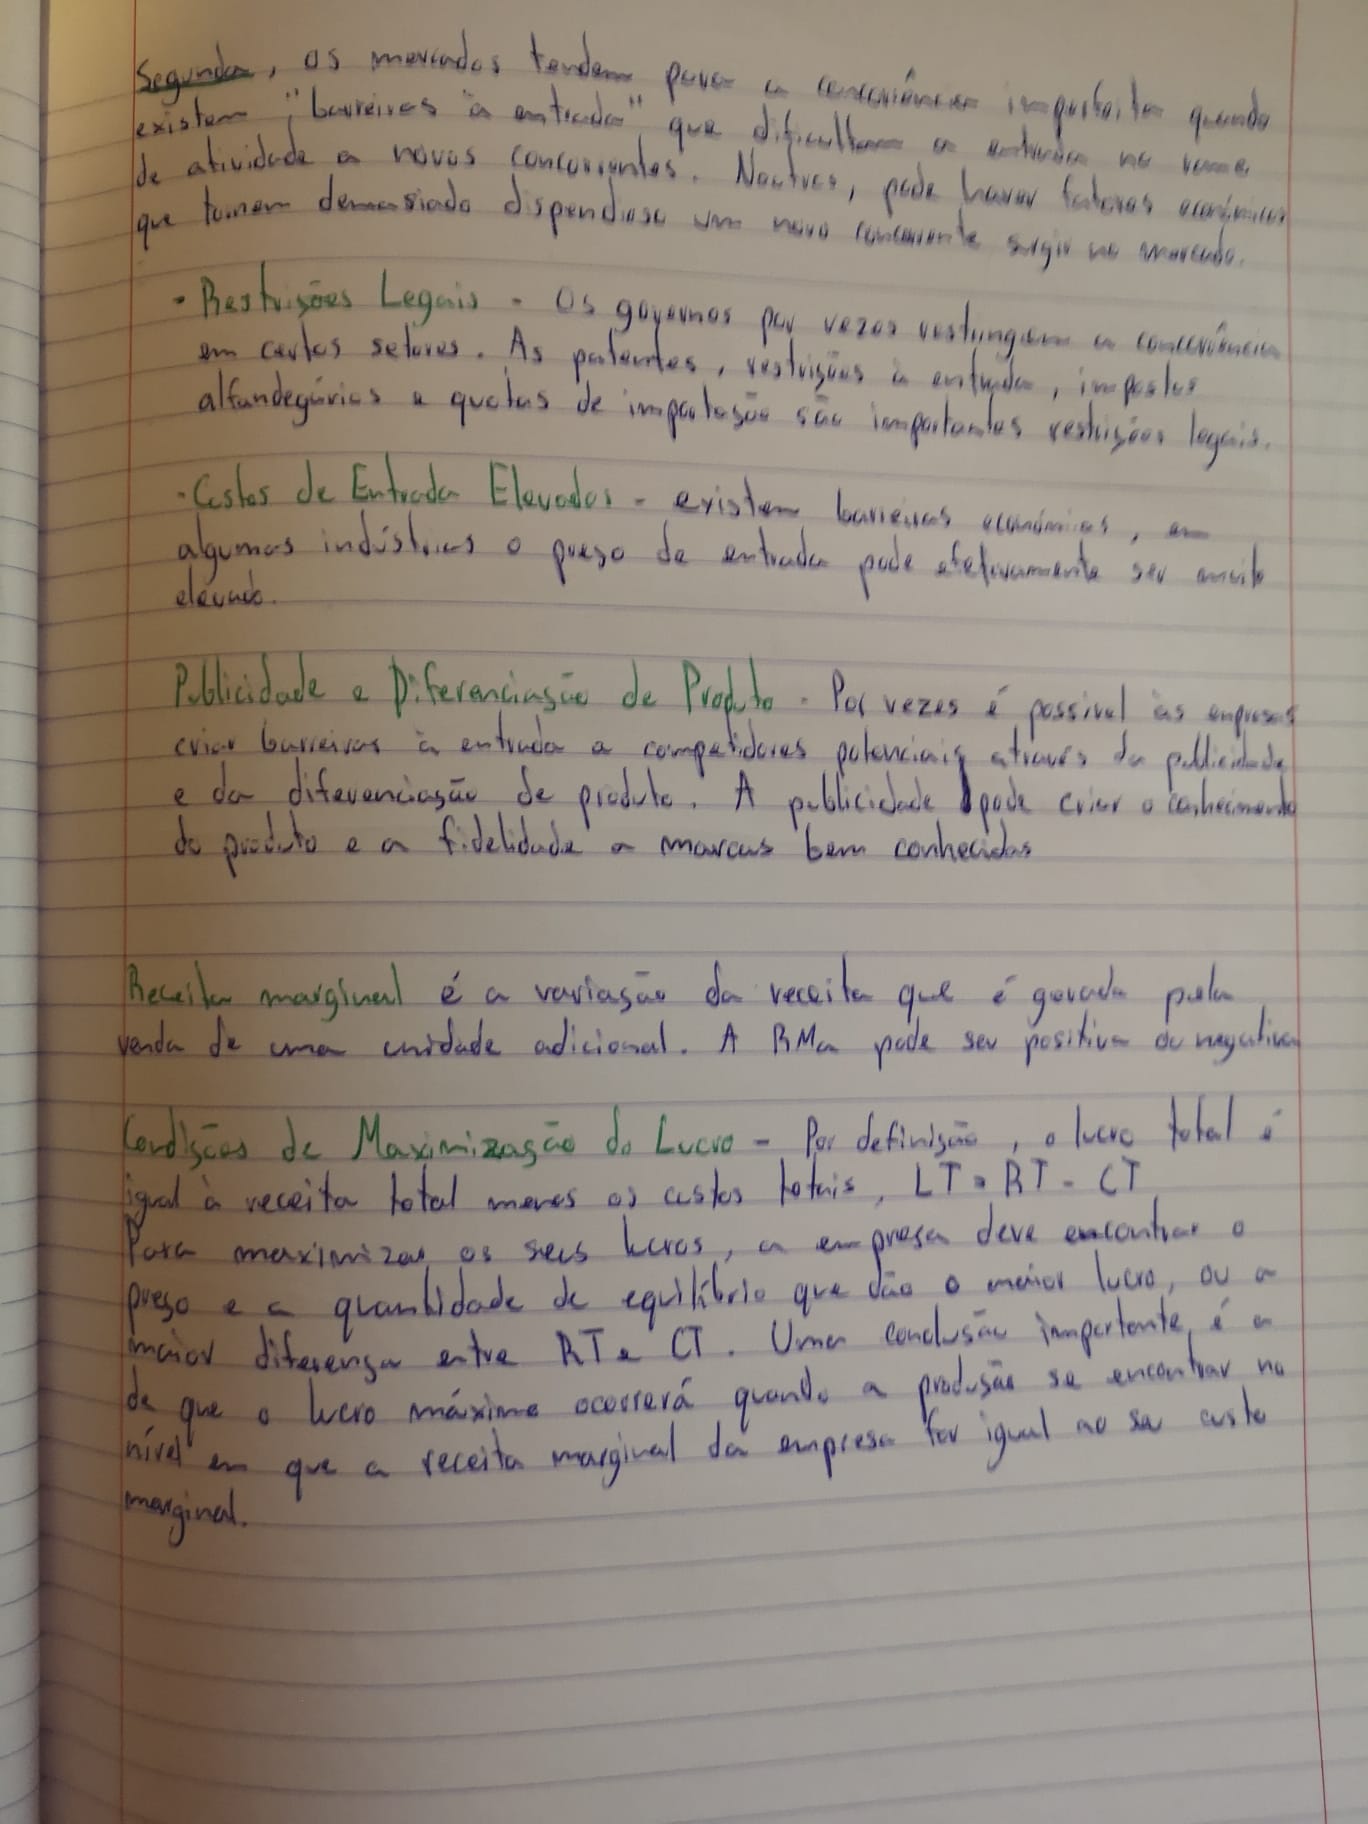 Segunda, os mercados tendem para a concorrência imperfeita quando
existem "barreiras à entrada" que dificultam a entrada no ramo
de atividade a novos concorrentes. Noutros, pode haver fatores económicos
que tornem demasiado dispendioso um novo concorrente surgir no mercado.
- Restrisões Legais - Os governos por vezes restringem a concorrência
em certos setores. As patentes, restrições à entrada, impostos
alfandegários e quotas de importasão são importantes restrisões legais.
- Custos de Entrada Elevados - existem barreiras económicas, em
algumas indústrias o preso de entrada pode efetivamente ser muito
elevado.
Publicidade e Diferenciasão de Produto - Por vezes é possivel às empresas
criar barreiras à entrada a competidores potenciais através da publicidade
e da diferenciasão de produto. A publicidade pode criar o conhecimento
do produto e a fidelidade a marcas bem conhecidas
Receita marginal é a variasão da receita que é gerada pela
venda de uma unidade adicional. A RMa pode ser positiva ou negativa
Condisões de Maximizasão do Lucro - Por definisão, o lucro total é
igual à receita total menos os custos totais, LT = RT - CT
Para maximizar os seus lucros, a empresa deve encontrar o
preso e a quantidade de equilíbrio que dão o maior lucro, ou a
maior diferensa entre RT e CT. Uma conclusão importante, é a
de que o lucro máximo ocorrerá quando a produsão se encontrar no
nível em que a receita marginal da empresa for igual ao custo
marginal.